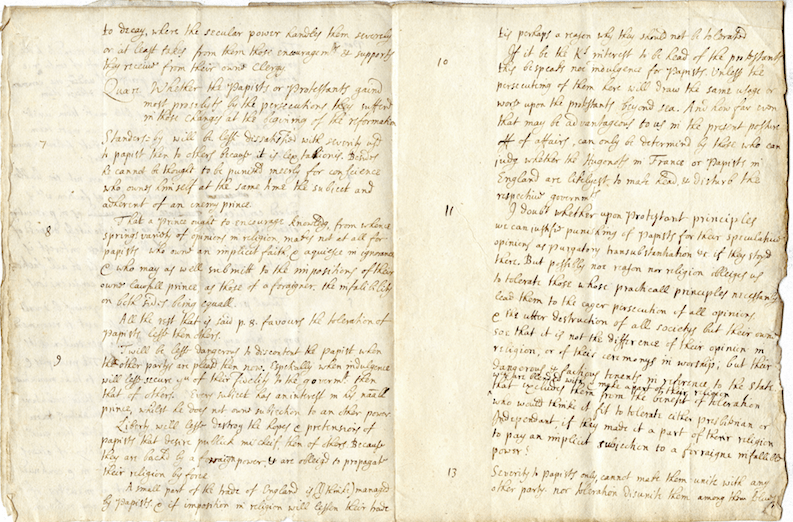 to decay, where the secular power handles them severely
or at least takes from them those encouragemts & supports
they receive from their owne Clergy
Quaere Whether the Papists or Protestants gaind
most proselits by the persecutions they sufferd
in those changes at the begining of the reformation
7
Standers-by will be lesse dissatisfied with severity usd
to papist then to others because it is lex talionis. Besides
cannot be thought to be punishd meerly for conscience
who ownes himself at the same time the subject and
adherent of an enemy prince
8
That a Prince ought to encourage knowledg, from whence
springs variety of opinions in religion makes not at all for
papists who owne an implicit faith & aquiesce in ignorance
& who may as well submitt to the impositions of their
owne lawfull prince as those of a foraigner. the infalibility
on both sides being equall
All the rest that is said p. 8. favours the toleration of
Papists lesse then others.
9
Twill be lesse dangerous to discontent the papist when
the other partys are pleasd then now. Especially when indulgence
will lesse secure yu of their fidelity to the governmt then
that of others. Every subject has an interest in his naturall
prince, whilst he does not owne subjection to an other power
Liberty will lesse destroy the hopes & pretensions of
papists that desire publick mischeif then of others. Because
they are backd by a foraigne power, & are obleigd to propagat
their religion by force
A small part of the trade of England is (I thinke) managed
by Papists & if imposition in religion will lessen their trade
tis perhaps a reason why they should not be tolerated
10
If it be the Ks interest to be head of the protestants
this bespeaks noe indulgence for papists. Unlesse the
persecuting of them here will draw the same usage or
worse upon the protestants beyond sea. And how far even
that may be advantageous to us in the present posture
of affairs, can only be determind by those who can
judg whether the Hugenots in France or Papists in
England are likelyest to make head, & disturb the
respective governmts
11
I doubt whether upon Protestant principles
we can justifie punishing of Papists for their speculative
opinions as Purgatory transubstantiation &c if they stopd
there. But possibly noe reason nor religion obleiges us
to tolerate those whose practicall principles necessarily
lead them to the eager persecution of all opinions
& the utter destruction of all societys but their owne
soe that it is not the difference of their opinion in
religion, or of their ceremonys in worship; but their
dangerous & factious tenents in reference to the state
wch are blended with & make a part of their religion
that excludes them from the benefit of toleration
who would thinke it fit to tolerate either presbiterian or
Independant, if they made it a part of their religion
to pay an implicit subjection to a forraigne infallible
power?
13
Severity to papists only, cannot make them unite with any
other party. nor toleration disunite them among themselves